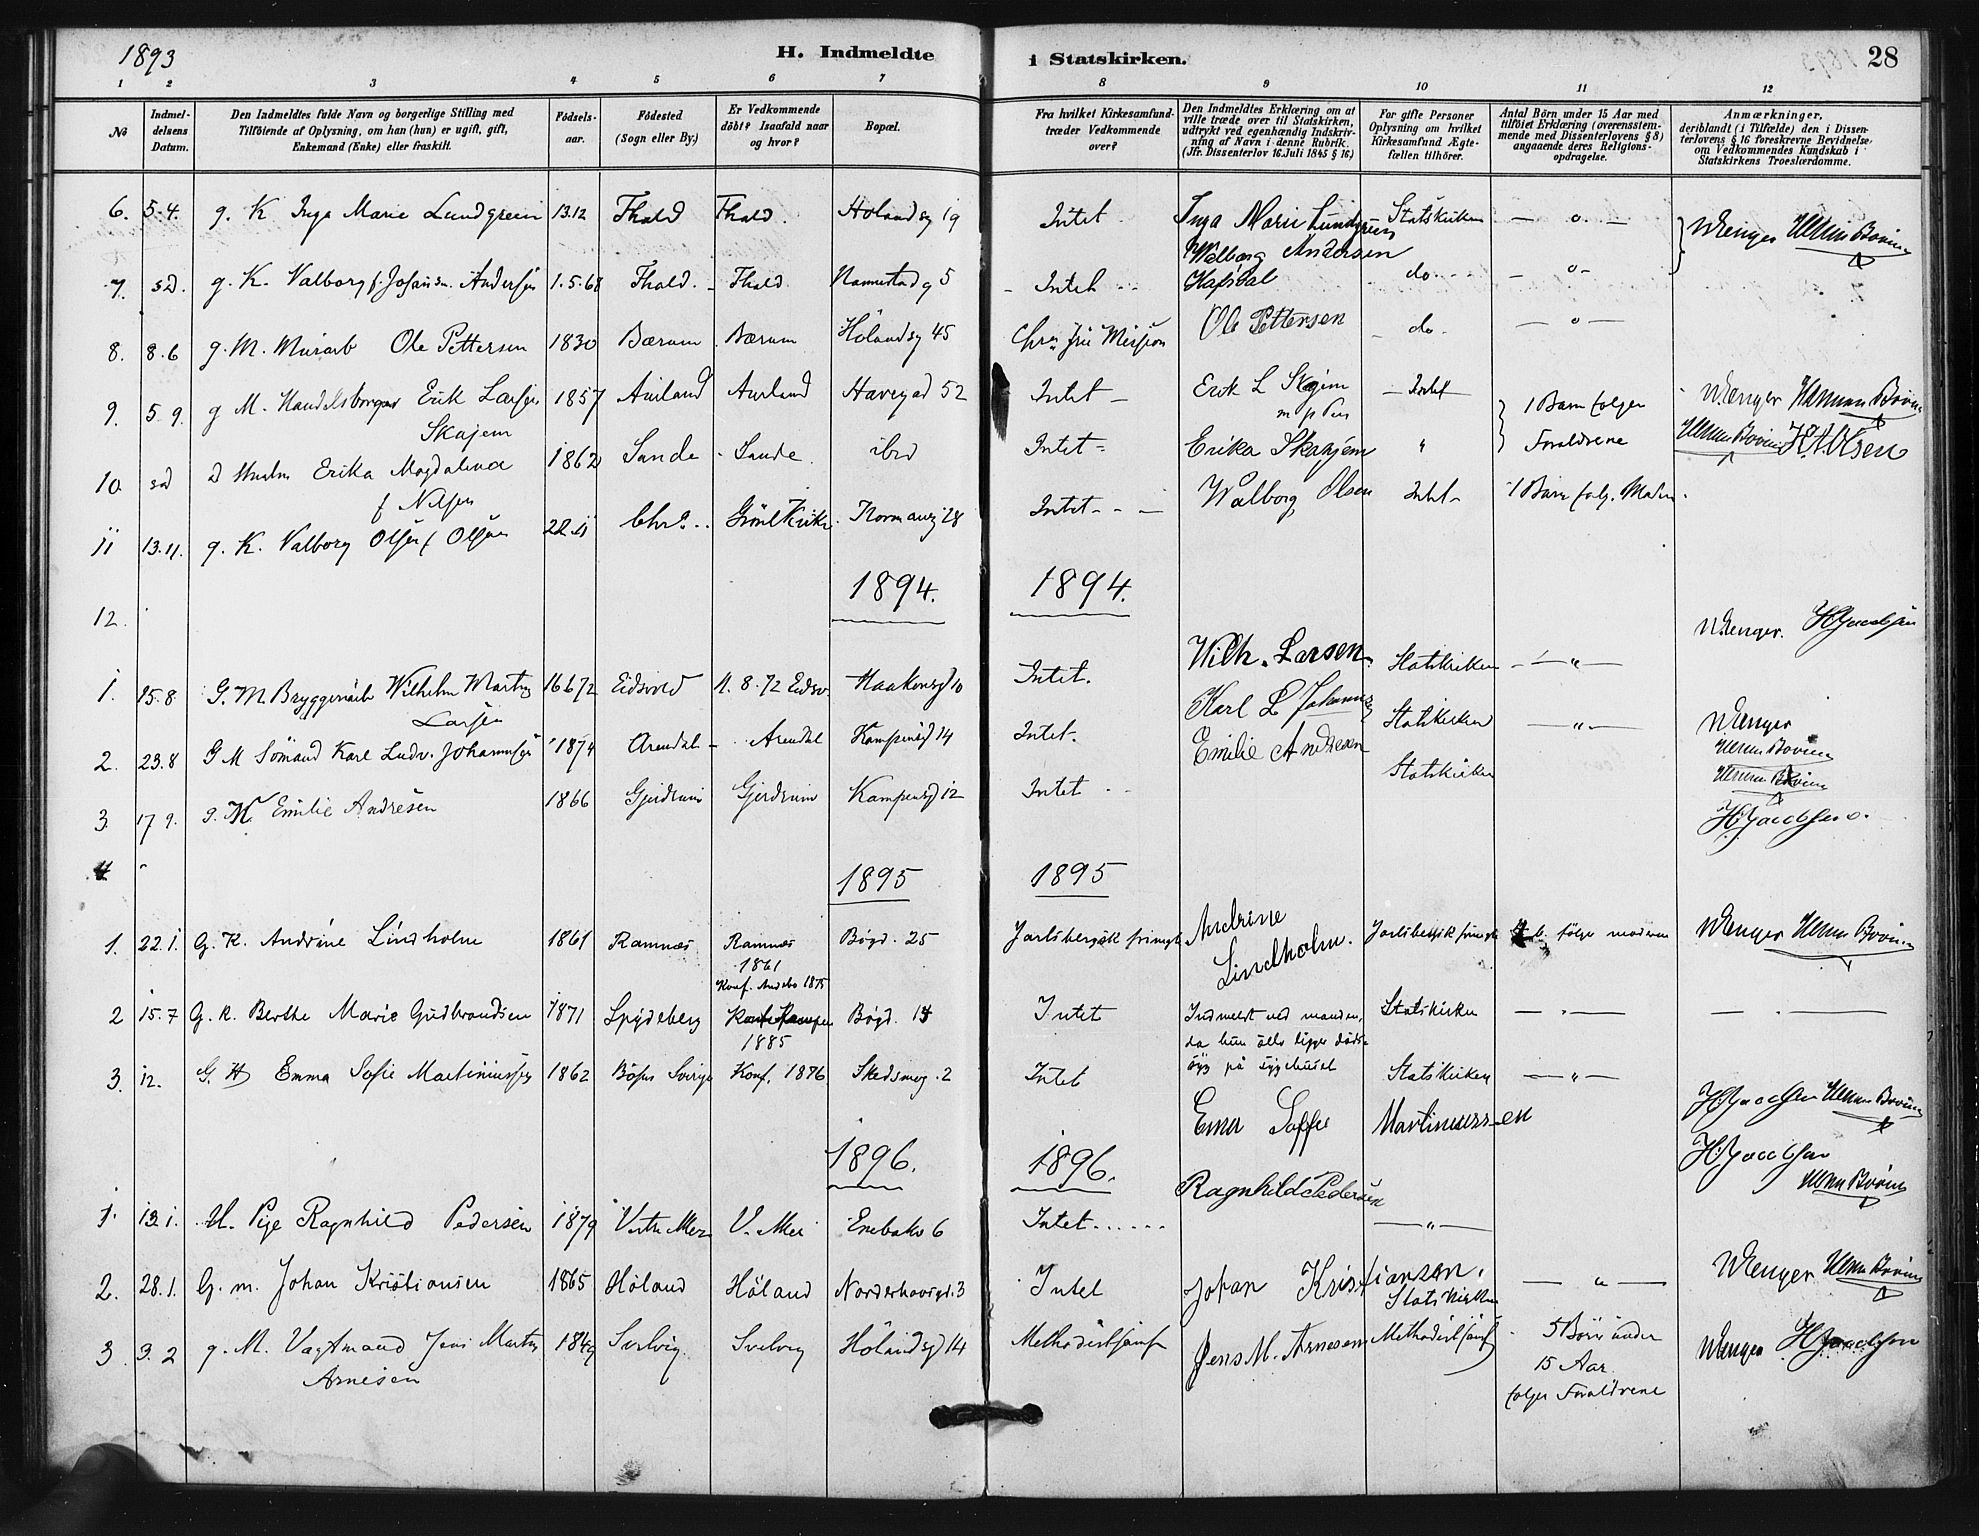 1893
H. Indmeldte i Statskirken.
28
1 2 3 4 5 6 7 8 9 10 11 12
No
Indmel-
delsens
Datum.
Den Indmeldtes fulde Navn og borgerlige Stilling med
Tilföiende af Oplysning, om han (hun) er ugift, gift,
Enkemand (Enke) eller fraskilt.
Födsels-
aar.
Födested
(Sogn eller By.)
Er Vedkommende
döbt? Isaafald naar
og hvor?
Bopæl.
Fra hvilket Kirkesamfund
træder Vedkommende
over?
Den Indmeldtes Erklæring om at
ville træde over til Statskirken,
udtrykt ved egenhændig Indskriv-
ning af Navn i denne Rubrik.
(Jfr. Dissenterlov 16. Juli 1845 § 16)
For gifte Personer
Oplysning om hvilket
Kirkesamfund Ægte-
fællen tilhörer.
Antal Börn under 15 Aar med
tilföiet Erklæring (overensstem-
mende med Dissenterlovens § 8)
angaaende deres Religions-
opdragelse.
Anmærkninger,
deriblandt (i Tilfælde) den i Dissen-
terlovens § 16 foreskrevne Bevidnelse
om Vedkommendes Kundskab i
Statskirkens Troeslærdomme.
6. 5.4. g. K Inga Marie Lundgreen 13.12 Fhald Fhald Hølandsg 19 Intet Inga Marie Lundgren Statskirken — o —
7. sd. g. K. Valborg f. Johansen Andersen 1.5.68 Fhald Fhald Nannestadg 5 Intet Walborg Andersen do — o —
8. 8.6 g. M. Murarb Ole Pettersen 1830 Bærum Bærum Hölandsg 45 Ole Pettersen do — o —
9. 5.9. g M. Handelsborger Erik Larsen 1857 Aurland Aurland Havegad 52 Intet Erik L Skajem Intet 1 Barn følger
Skajem
10 sd Erika Magdalena 1862 Sande Sande ibid Intet Erika Skajem " Forældrene H.A. Olsen
f Nilsen
11 13.11. g. K. Valborg Olsen f Olsen Chra. Grönl Kirke Normannsg 28 Intet Walborg Olsen Intet 1 Barn følg. Moder
12.
1894. 1894.
1. 15.8 G. M. Bryggeriarb Wilhelm Martin 16 6 72 Eidsvold 11.8.72 Eidsv. Haakonsgd 10 Intet. Wilh. Larsen Statskirken — " —
Larsen
2. 23.8 G M Sömand Karl Ludv. Johannsen 1874 Arendal Arendal Kampensgd 14 Intet. Karl L Johannsen Statskirken — " —
3. 17 9. g. K. Emilie Andresen 1866 Gjerdrum Gjerdrum Kampensgd 12 Intet Emilie Andresen Statskirken
H Jacobsen
4
1895 1895
1. 22.1. G. K. Andrine Lindholm 1861 Ramnæs Ramnæs Bøgd. 25 Jarlsbergsk frimgh Andrine Lindholm. Jarlsbergsk frimgh b. følge moderen
1861
Konf. Andebo 1875
2 15.7 G. K. Berthe Marie Gudbrandsen 1871 Spydeberg Bøgd. Intet Indmeldt ved manden, Statskirken — " —
1885 da hun
på sygehuset
3. 12. G. K Emma Sofie Martiniussen 1862 Sverige Konf. 1876 Skedsmog. 2 Intet Statskirken — " —
Ema Soffie Martinussen
1896. 1896.
1. 13.1. U. Pige Ragnhild Pedersen 1879 V. Aker Enebakv 6 Intet Ragnhild Pedersen — " —
2. 28.1. G. m. Johan Kristiansen 1865 Höland Höland Norderhovsgd. 3 Intet Johan Kristiansen. Statskirken — " —
3 3.2 g. M. Vagtmand Jens Martin 1849 Svelvig Svelvig Hölandsgd 14 Methodistsamf Jens M. Arnesen Methodistsamf 5 Börn under
Arnesen 15 Aar
følger Forældrene